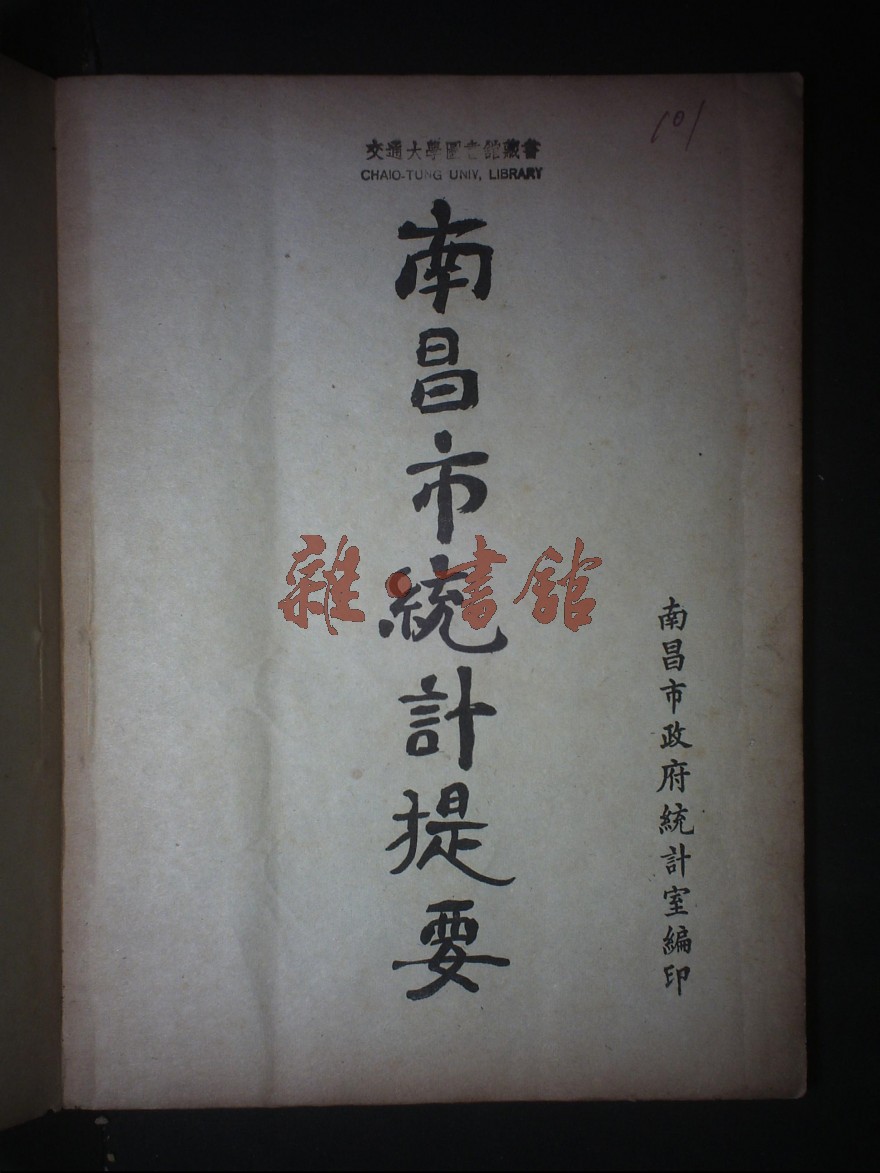 101
交通大學圖書館藏書
CHAIO-TUNG UNIV, LIBRARY
南昌市統計提要
雜·書館
南昌市政府統計室編印